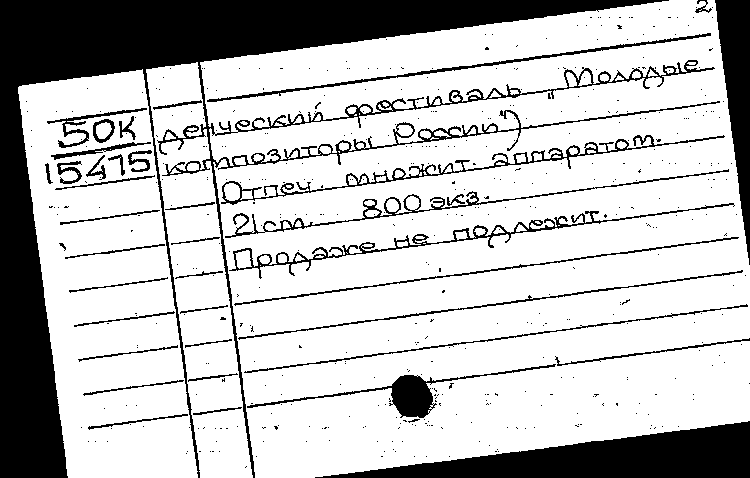 2
50К
15475
денческий фестиваль „Молодые
композиторы России")
Отпеч. множит. аппаратом.
21cm. 800 экз.
Продаже не подлежит.